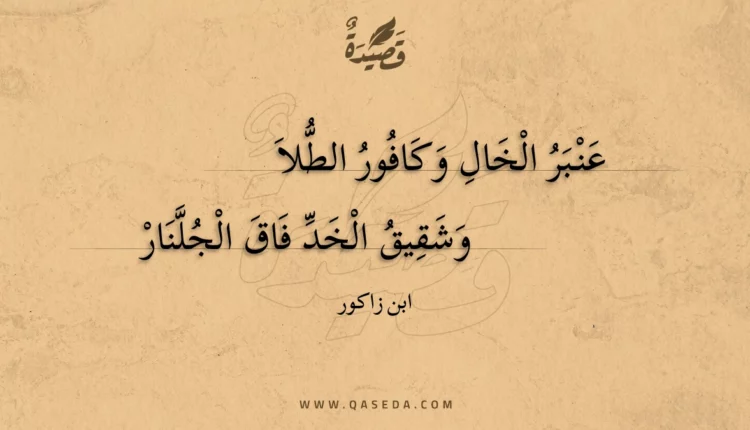 قَصِيدَةٌ
عَنْبَرُ الْخَالِ وَكَافُورُ الطُّلاَ
وَشَقِيقُ الْخَدِّ فَاقَ الْجُلَّنَارْ
ابن زاكور
WWW.QASEDA.COM